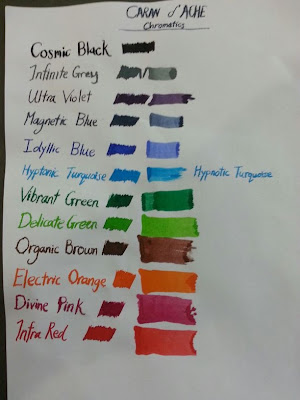 CARAN d'ACHE
Chromatics
Cosmic Black
Infinite Grey
Ultra Violet
Magnetic Blue
Idyllic Blue
Hyptonic Turquoise Hypnotic Turquoise
Vibrant Green
Delicate Green
Organic Brown
Electric Orange
Divine Pink
Infra Red